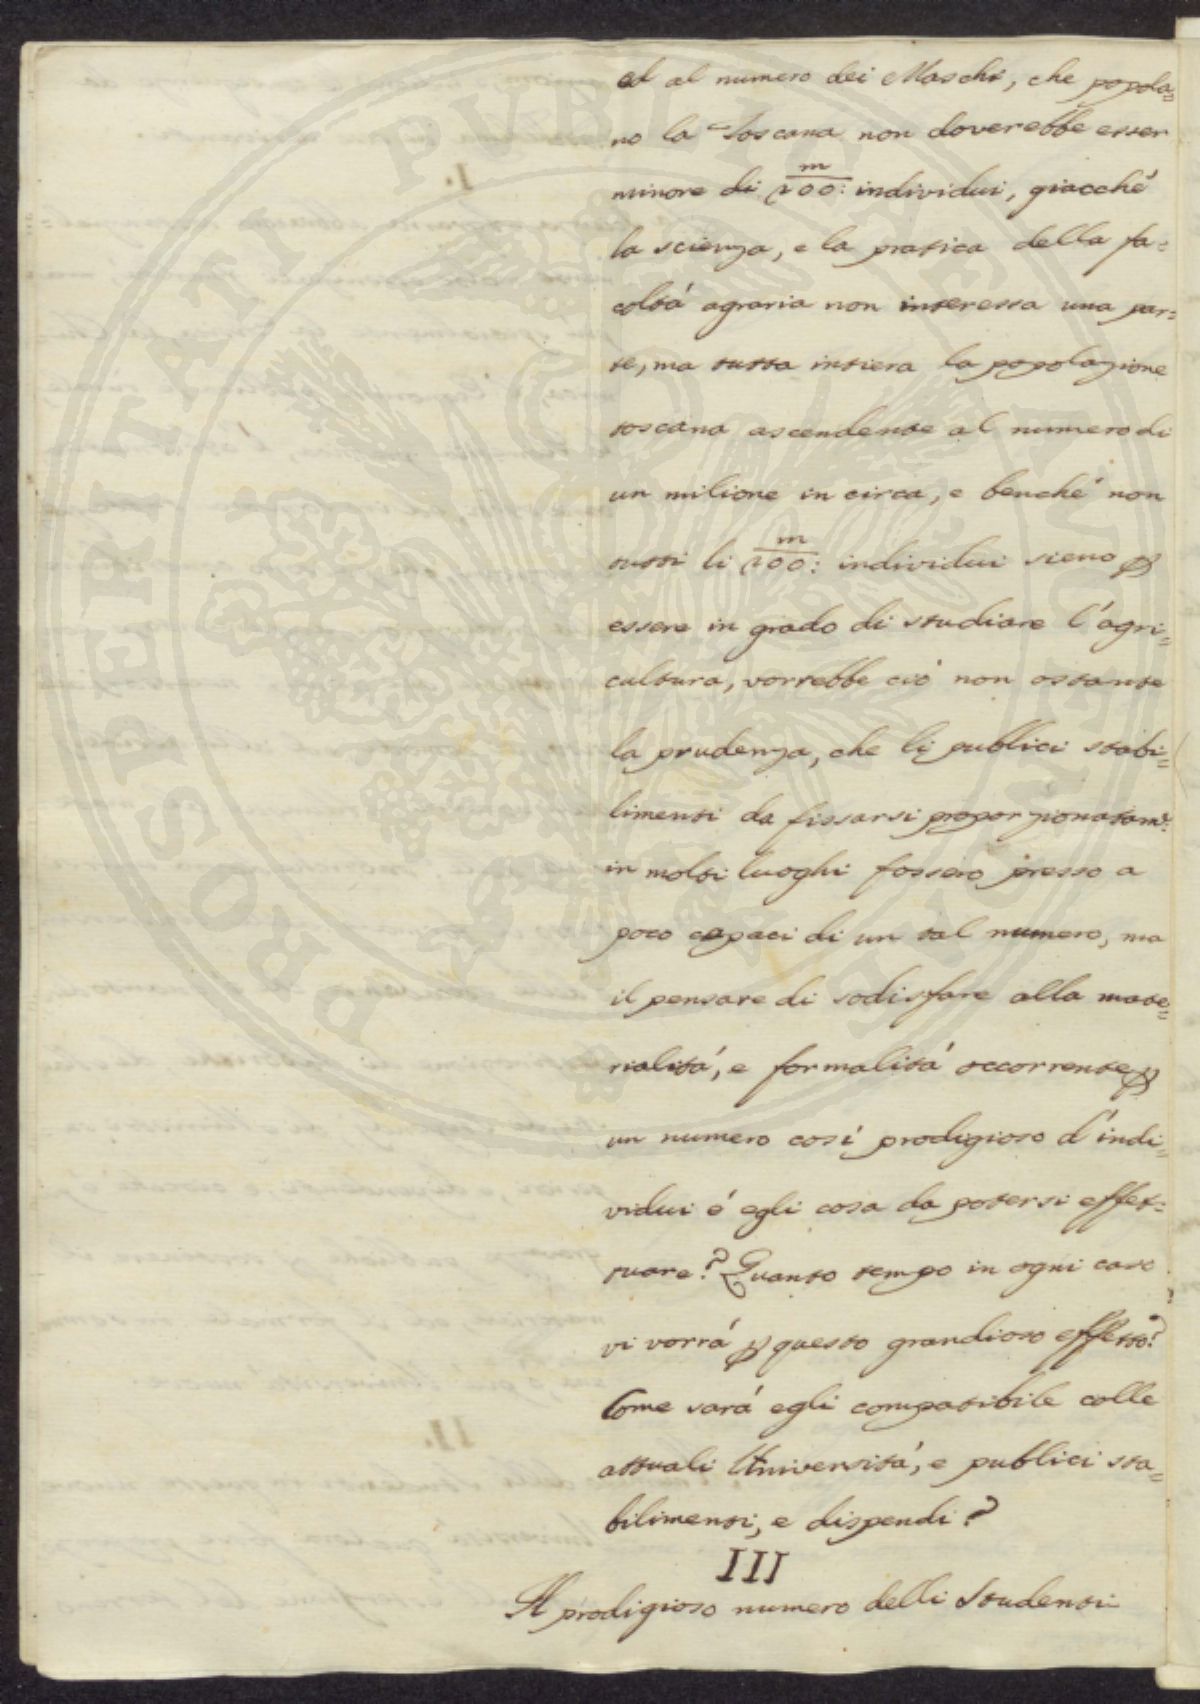 ed al numero dei Maschi, che popola=
no la Toscana non doverebbe esser
minore di 200:m individui, giacché
la scienza, e la pratica della fa=
coltá agraria non interessa una par=
te, ma tutta intiera la popolazione
toscana ascendente al numero di
un milione in circa, e benché non
tutti li 200:m individui sieno p
essere in grado di studiare l'agri=
cultura, vorrebbe ció non ostante
la prudenza, che li publici stabi=
limenti da fissarsi proporzionatam:
in molti luoghi fossero presso a
poco capaci di un tal numero, ma
il pensare di sodisfare alla mate=
rialitá, e formalitá occorrente p
un numero cosí prodigioso d'indi=
vidui é egli cosa da potersi effet=
tuare? Quanto tempo in ogni caso
vi vorrá p questo grandioso effetto?
Come sará egli compatibile colle
attuali Universitá, e publici sta=
bilimenti, e dispendi?
III
Al prodigioso numero delli Studenti
PROSPERITATI PUBLICAE AUGENDAE